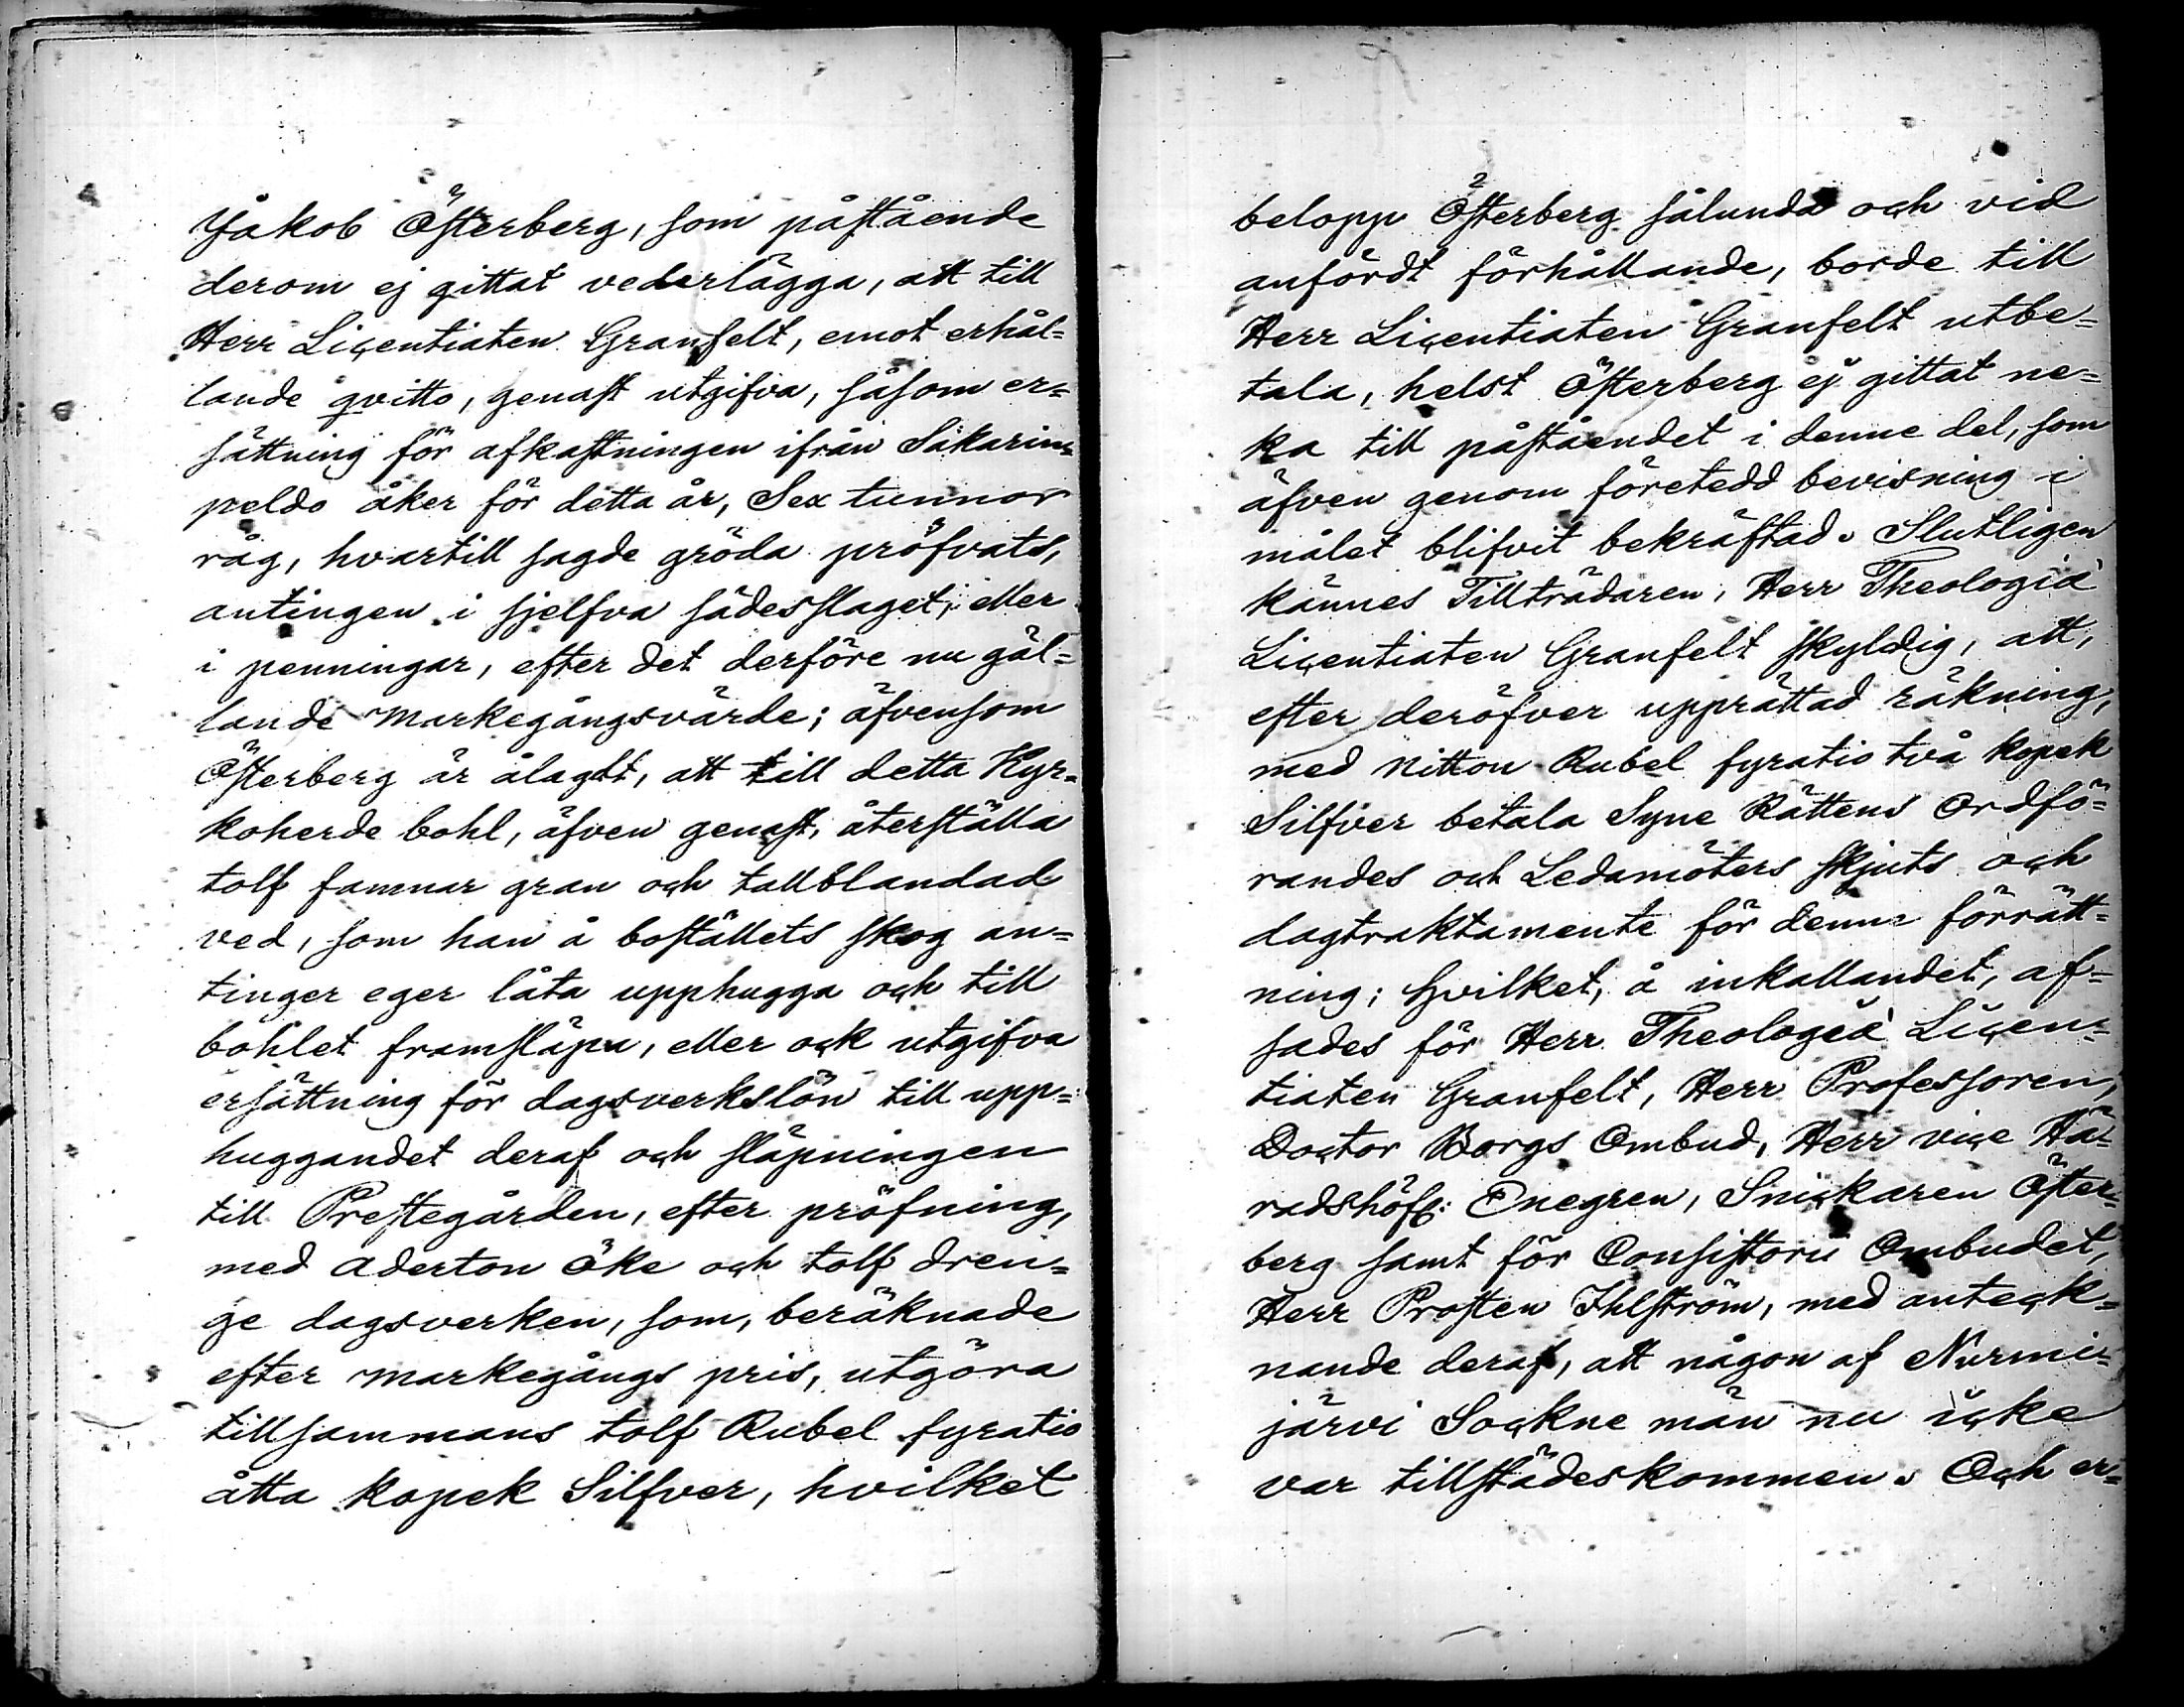 Jakob Österberg, som påstående
derom ej gittat vederlägga, att till
Herr Licentiaten Granfelt, emot erhål=
lande qvitto, genast utgifva, såsom er=
sättning för afkastningen ifrån Säkarin=
peldo åker för detta år, Sex tunnor
råg, hvartill sagde gröda pröfvats,
antingen i sjelfva sädesslaget, eller
i penningar, efter det derföre nu gäl=
lande markegångsvärde; äfvensom
Österberg är ålagdt, att till detta Kyr=
koherde bohl, äfven genast, återställa
tolf famnar gran och tallblandad
ved, som han å boställets skog an=
tinger eger låta upphugga och till
bohlet framsläpa, eller ock utgifva
ersättning för dagsverkslön till upp=
huggandet deraf och släpningen
till Prestegården, efter pröfning,
med aderton öke och tolf dren=
ge dagsverken, som, beräknade
efter markegångs pris, utgöra
tillsammans tolf Rubel fyratio
åtta kopek Silfver, hvilket
belopp Österberg sålunda och vid
anfördt förhållande, borde till
Herr Licentiaten Granfelt utbe=
tala, helst Österberg ej gittat ne=
ka till påståendet i denne del, som
äfven genom företedd bevisning i
målet blifvit bekräftad. Slutligen
kännes Tillträdaren, Herr Theologiæ
Licentiaten Granfelt skyldig, att,
efter deröfver upprättad räkning,
med nitton Rubel fyratio två kopek
Silfver betala Syne Rättens Ordfö=
randes och Ledamöters skjuts och
dagtraktamente för denna förrätt=
ning; Hvilket, å inkallandet, af=
sades för Herr Theologiæ Licen=
tiaten Granfelt, Herr Professoren,
Doctor Borgs Ombud, Herr vice Hä=
radshöfd: Enegren, Snickaren Öster=
berg samt för Consistorii Ombudet,
Herr Prosten Ihlström, med anteck=
nande deraf, att någon af Nurmi=
järvi Sockne män nu icke
var tillstädeskommen. Och er=